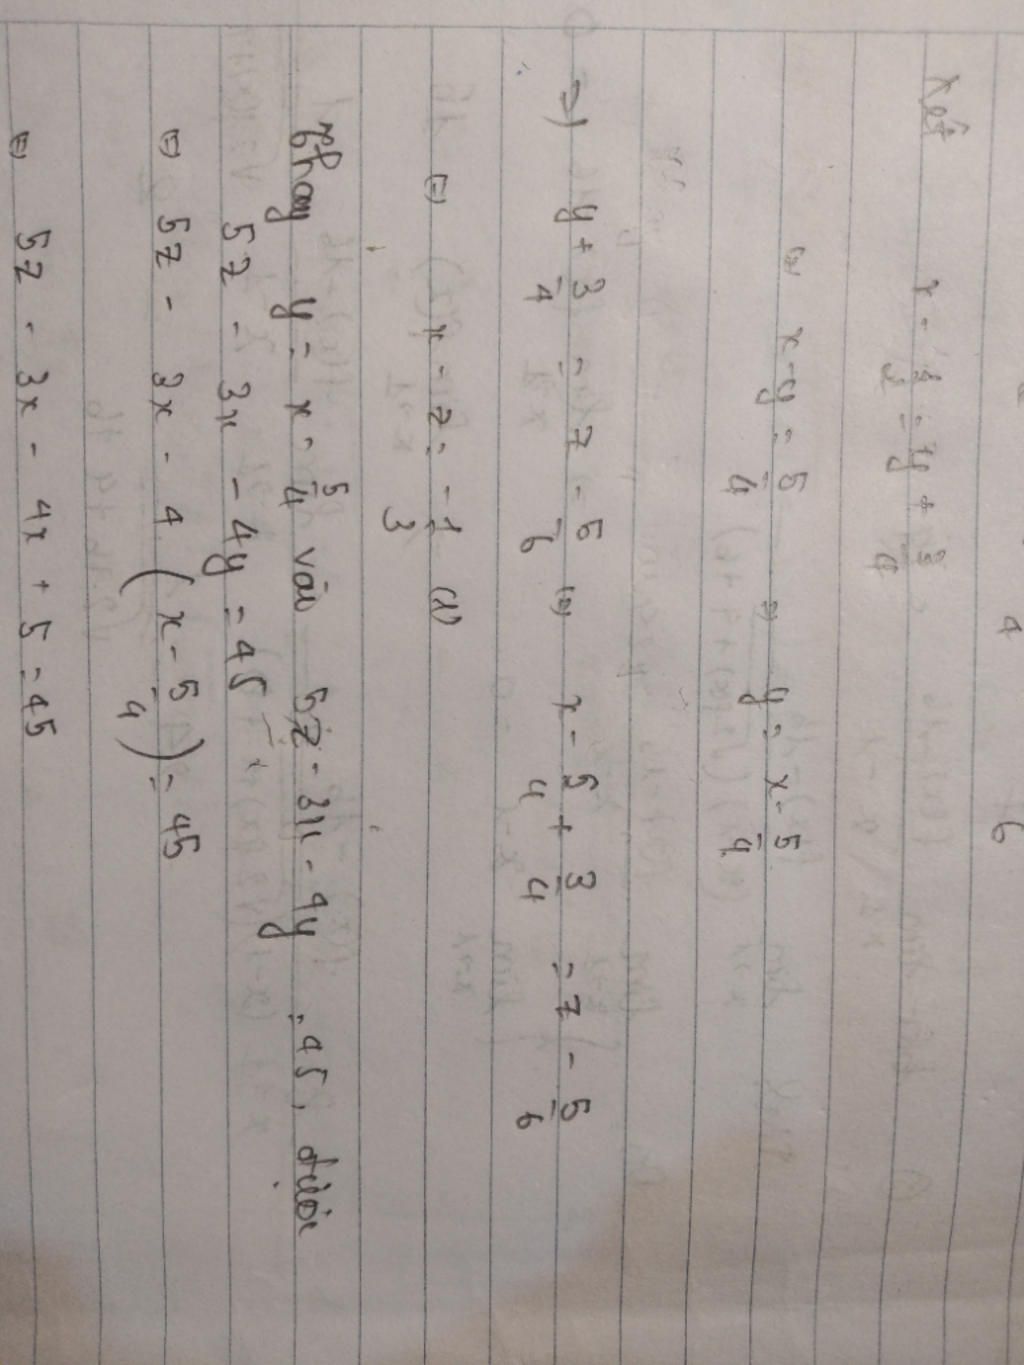 4 6
Xét x - 1/2 = y + 3/4
(=) x - y = 5/4 => y = x - 5/4
=) y + 3/4 = z - 5/6 (=) x - 5/4 + 3/4 = z - 5/6
(=) x - z = -1/3 (1)
Thay y = x - 5/4 vào 5z - 3x - 4y = 45, được
5z - 3x - 4y = 45
(=) 5z - 3x - 4 (x - 5/4) = 45
(=) 5z - 3x - 4x + 5 = 45